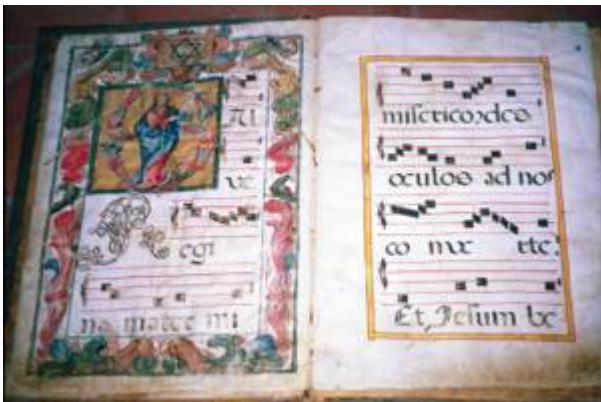 Al
ve
Regi
na mater mi
misericordes
oculos ad nos
co nver rte:
Et, Jesum be